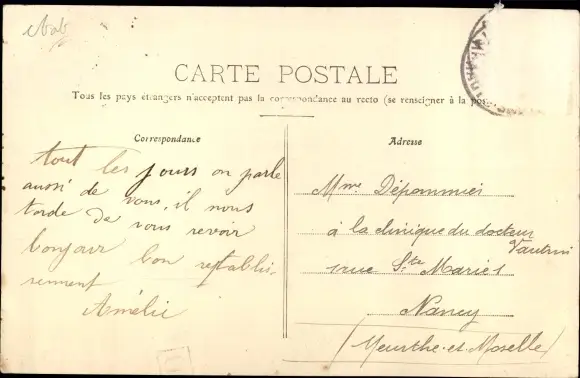 CARTE POSTALE
Tous les pays étrangers n'acceptent pas la correspondance au recto (se renseigner à la pos
Correspondance
tout les jours on parle
aussi de vous, il nous
tarde de vous revoir
bonjour bon reptablis-
sement
Amélie
Adresse
Mme Dépommier
à la clinique du docteur
Vautrin
rue Ste Marie 1
Nancy
(Meurthe-et-Moselle)